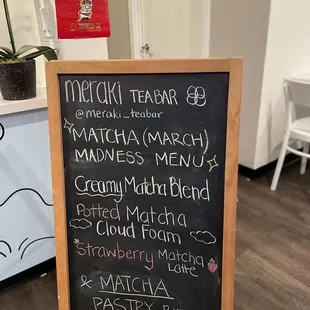 meraki TEA BAR
@meraki_teabar
MATCHA (MARCH)
MADNESS MENU
Creamy Matcha Blend
Potted Matcha
Cloud Foam
Strawberry Matcha
Latte
MATCHA
PASTRY